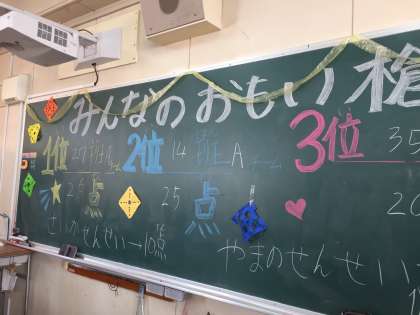 みんなのおもい
1位 2位 14班A 3位 35
点 25点 20
せんせい→10点 やまのせんせい